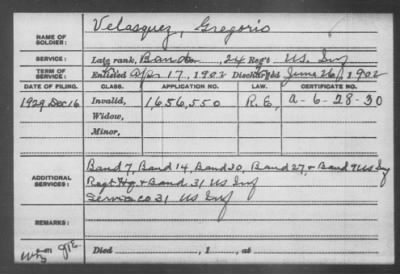 NAME OF SOLDIER: Velasquez, Gregorio
SERVICE: Late rank, Band 24 Reg't US. Inf
TERM OF SERVICE: Enlisted Apr 17, 1902 Discharged June 26, 1902
DATE OF FILING. CLASS. APPLICATION NO. LAW. CERTIFICATE NO.
1929 Dec 16 Invalid, 1,656,550 R.E, a-6-28-30
Widow,
Minor,
ADDITIONAL SERVICES: Band 7, Band 14, Band 30, Band 27, & Band 9 US Inf
Regt Hq & Band 31 US Inf
Service co 31 US Inf
REMARKS:
Died , 1 , at